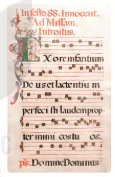 In festo SS. Innocent.
Ad Missam.
Introitus.
Ex ore infantium
De us et lactenti um
perfeci sti laudem prop
ter inimi cos tu os.
ps. Domine Dominus